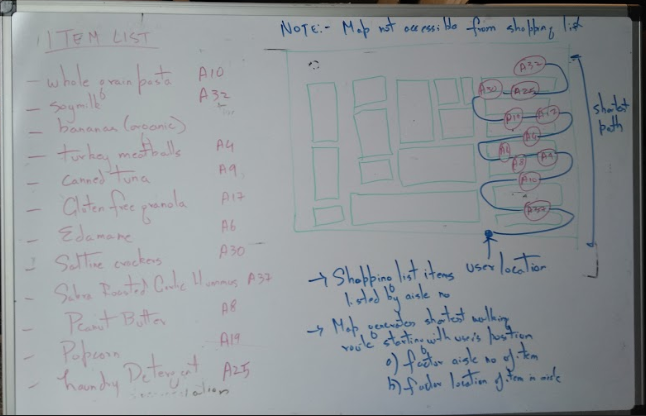 ITEM LIST
NOTE:- Map not accessible from shopping list
- whole grain pasta A10
- soymilk A32
- bananas (organic)
- turkey meatballs A4
- canned tuna A9
- Gluten free granola A17
- Edamame A6
- Saltine crackers A30
- Roasted Hummus A37
Peanut Butter A8
- Popcorn A19
- Laundry Detergent A25
A32
A30
A25
A17
A6
A9
A10
shortest path
user location
→ Shopping list items
listed by aisle no
→ Map generates shortest walking
route starting with user's position
a) factor aisle no of item
b) factor location of item in aisle